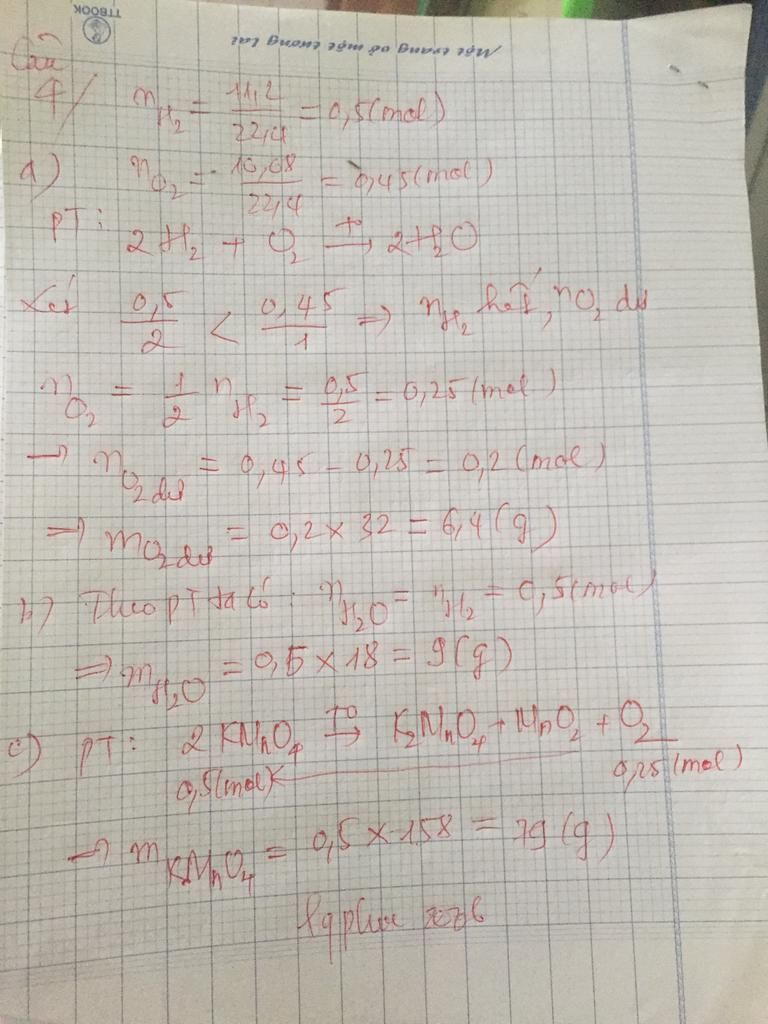 TTBOOK
Một trang vở một tương lai
Câu
4/ nH₂ = 11,2/22,4 = 0,5(mol)
a) nO₂ = 10,08/22,4 = 0,45(mol)
PT: 2H₂ + O₂ –t°→ 2H₂O
Xét 0,5/2 < 0,45/1 => nH₂ hết, nO₂ dư
nO₂ = 1/2 nH₂ = 0,5/2 = 0,25(mol)
→ nO₂ dư = 0,45 - 0,25 = 0,2(mol)
=> mO₂ dư = 0,2 × 32 = 6,4(g)
b) Theo PT ta có: nH₂O = nH₂ = 0,5(mol)
=> mH₂O = 0,5 × 18 = 9(g)
c) PT: 2KMnO₄ –t°→ K₂MnO₄ + MnO₂ + O₂
0,5(mol) ← 0,25(mol)
→ mKMnO₄ = 0,5 × 158 = 79(g)